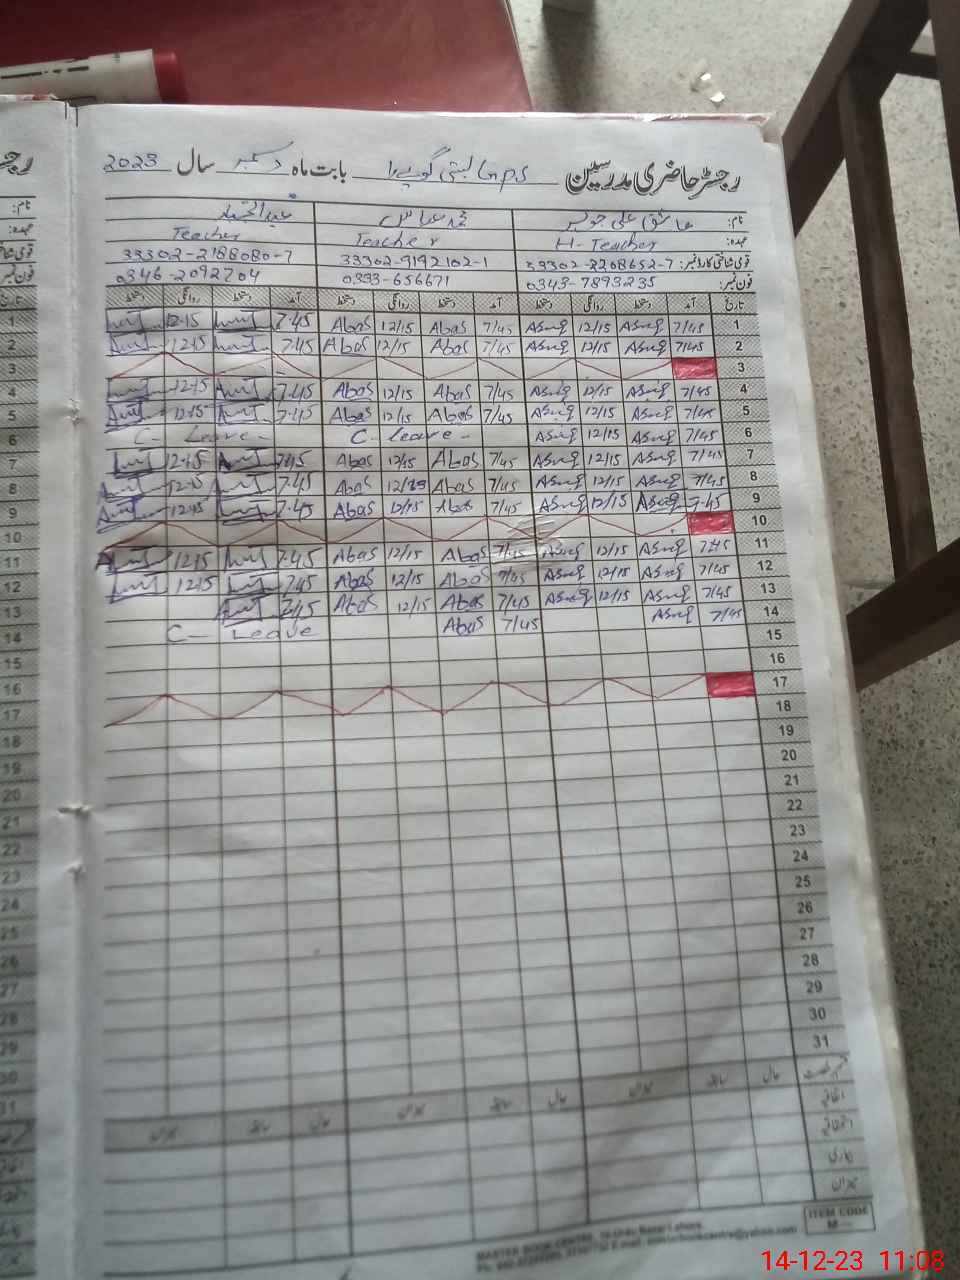 رجسٹر حاضری مدرسین GPS بستی گوپے را بابت ماہ دسمبر سال 2023
نام: عاشق علی جوہر محمد عباس عبدالحمید
عہدہ: H-Teacher Teacher Teacher
قومی شناختی کارڈ نمبر: 33302-2208652-7 33302-9192102-1 33302-2188080-7
فون نمبر: 0343-7893235 0333-656671 0346-2092704
تاریخ آمد دستخط روانگی دستخط آمد دستخط روانگی دستخط آمد دستخط روانگی دستخط
1 7/45 Asuq 12/15 Asuq 7/45 Abas 12/15 Abas 7.45 12.15
2 7/45 Asuq 12/15 Asuq 7/45 Abas 12/15 Abas 7.45 12.15
3
4 7/45 Asuq 12/15 Asuq 7/45 Abas 12/15 Abas 7.45 12.15
5 7/45 Asuq 12/15 Asuq 7/45 Abas 12/15 Abas 7.45 12.15
6 7/45 Asuq 12/15 Asuq C- Leave- C- Leave-
7 7/45 Asuq 12/15 Asuq 7/45 Abas 12/15 Abas 7.45 12.15
8 7/45 Asuq 12/15 Asuq 7/45 Abas 12/15 Abas 7.45 12.15
9 7.45 Asuq 12/15 Asuq 7/45 Abas 12/15 Abas 7.45 12.15
10
11 7:45 Asuq 12/15 Asuq 7/45 Abas 12/15 Abas 7.45 12.15
12 7/45 Asuq 12/15 Asuq 7/45 Abas 12/15 Abas 7.45 12.15
13 7/45 Asuq 12/15 Asuq 7/45 Abas 12/15 Abas 7.45
14 7/45 Asuq 7/45 Abas C- Leave
15
16
17
18
19
20
21
22
23
24
25
26
27
28
29
30
31
حال سابقہ میزان حال سابقہ میزان حال سابقہ میزان
اتفاقیہ
استحقاقیہ
بیماری
میزان
ITEM CODE
M
MASTER BOOK CENTRE
14-12-23 11:08